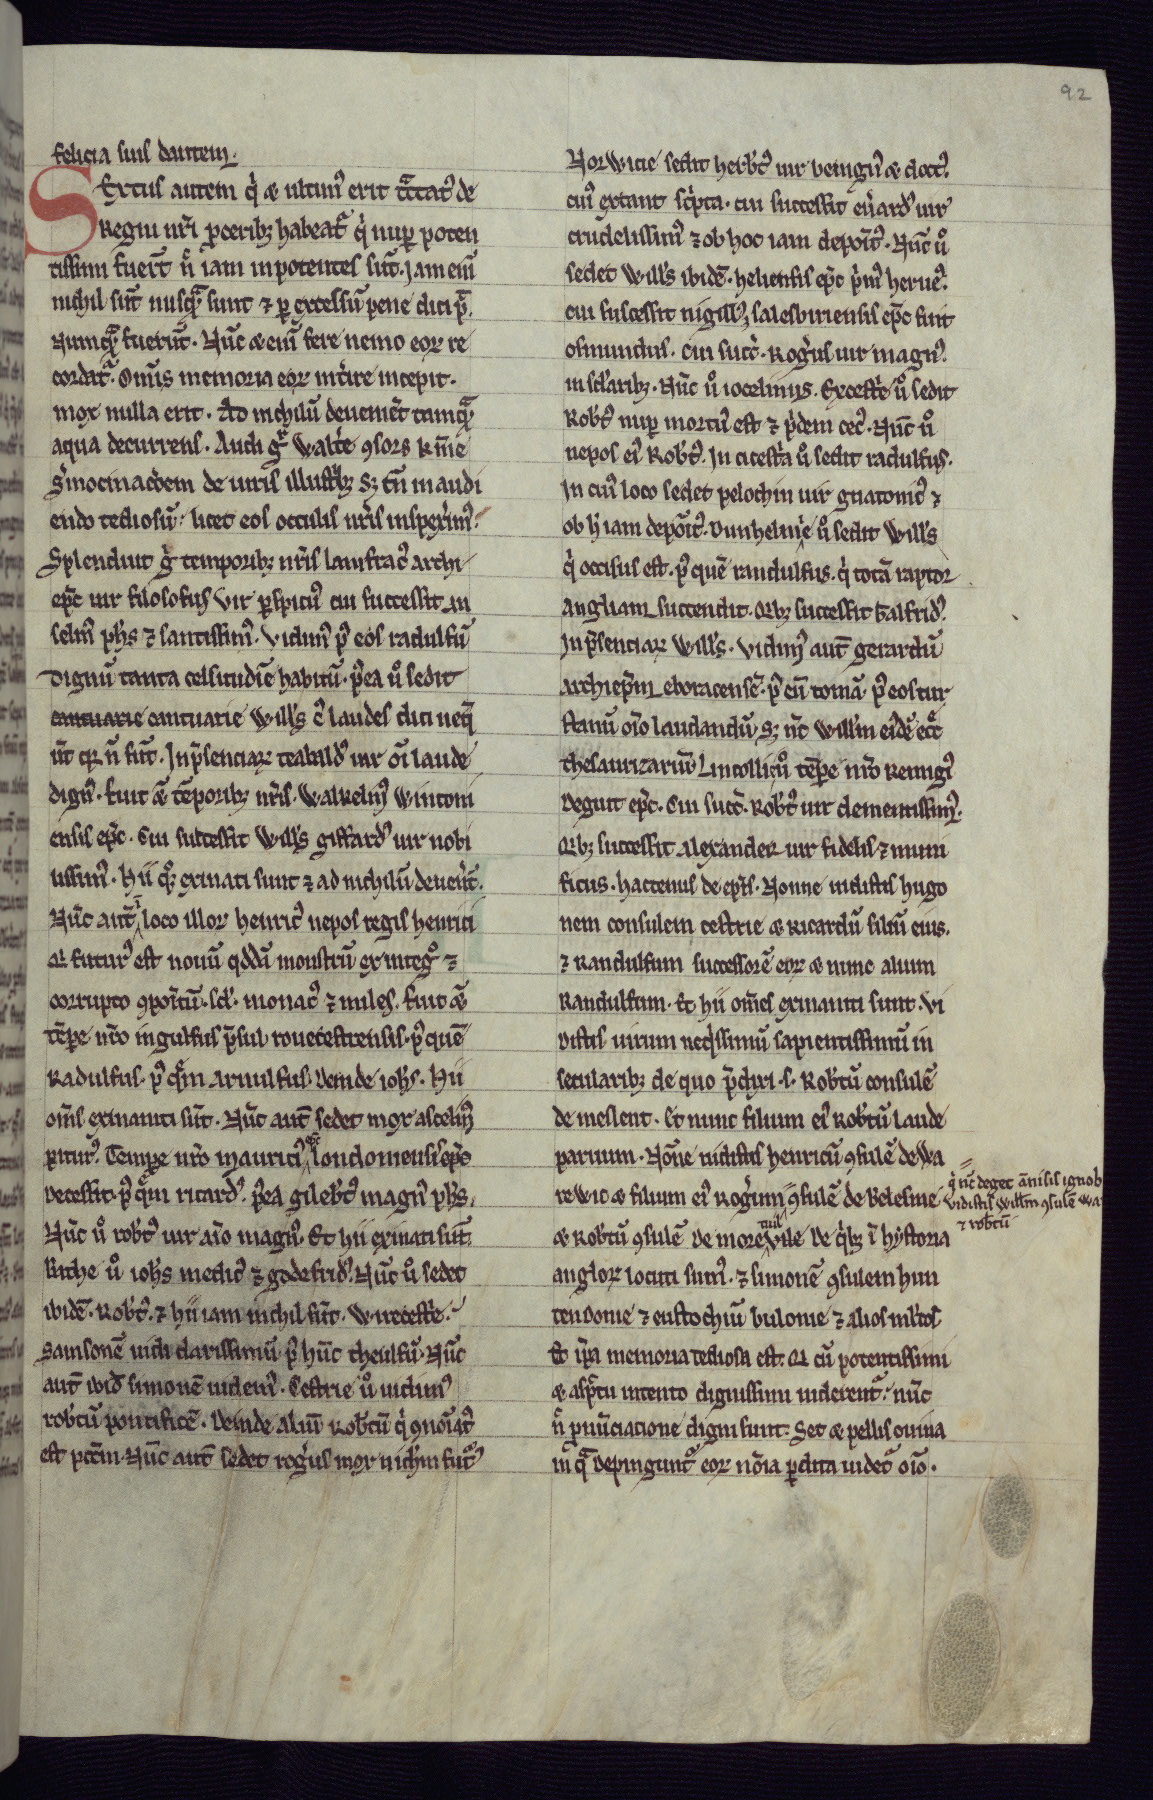 92
felicia suis dantem.
Sextus autem q̇ & ultim᷒ erit tᷓctat᷒ de
Regni nr̄i ꝓcerib; habeat᷒ q̇ nuꝑ poten
tissimi fuerūt n̄ iam inpotentes sūt. Jam enī
nichil sūt nusq̄ᷓ sunt ⁊ ꝑ excessū pene dici p̄t.
Numq̄ᷓ fuerūt. Nūc & enī fere nemo eoꝝ re
cordat᷒. Omīs memoria eoꝝ int̄ire incepit.
mox nulla erit. Ad nichilū deueniēt tamq̄ᷓ
aqua decurrens. Audi gͦ Walt̄e ꝯsors
S̄mocinac̄oem de uiris illustᷓb; s; tn̄ in audi
endo tediosū: licet eos occulis nr̄is inspexim᷒.
Splenduit gͦ temporib; nr̄is lamfrac᷒ archi
ep̄c uir filosofus Vir ꝑspicu᷒ cui successit An
selm᷒ ph̄s ⁊ santissim᷒. Vidim᷒ p᷒ eos radulfū
Dignū tanta celsitudīe habitū. p᷒ea u̇ͦ sedit
cantuarie cantuarie Will̄s c᷒ laudes dici neq̄
ūt qꝛ n̄ sūt. Inp̄senciaꝝ teabald᷒ uir oī laude
dign᷒. fuit &̄ tēporib; nr̄is. Walkelin᷒ Wintoni
ensis ep̄c. Cui successit Will̄s giffard᷒ uir nobi
lissim᷒. Hii qͦ; exinati sunt ⁊ ad nichilū deuen̄t.
Nūc aut̄ ı̇ loco illoꝝ henric᷒ nepos regis henrici
Q᷒ futur᷒ est nouū qddā monstrū ex integͦ ⁊
corrupto ꝯpoitū. scl᷒. monac᷒ ⁊ miles. fuit &̄
tēpe nr̄o ingulfus p̄sul rouecestrensis. p᷒ quē
Radulfus. p᷒ qͦm arnulfus. Deinde ioh̄s. Hii
om̄s exinaniti sūt. Nūc aut̄ sedet mox ascelin᷒
piturus. Tempe nr̄o maurici᷒ ep̄c londoniensis ep̄c
Decessit. p᷒ qͦm ricard᷒. p᷒ea gileb̄t᷒ magn᷒ ph̄s,
Nūc u̇ͦ rob̄t᷒ uir aīo magn᷒. Et hii exinati sūt.
Bathe u̇ͦ ioh̄s medic᷒ ⁊ godefrid᷒. Nūc u̇ͦ sedet
ibidē. Rob̄t᷒. ⁊ hii iam nichil sūt. Wirecestr̄e.
Samsonē uidi clarissimū. p᷒ hūc theulfū. Nūc
aut̄ ibid̄ simonē uidem᷒. Cestrie u̇ͦ uidim᷒
rob̄tū pontificē. Deinde Aliū Robt̄ū q̇ ꝯnoiat᷒
est pctm̄. Nūc aut̄ sedet roḡus mox nich̄m fut᷒᷒
Norwicie sedit herb̄t᷒ uir benign᷒ & doct᷒.
cui᷒ extant sc̄pta. cui successit eu̇ard᷒ uir
crudelissim᷒ ⁊ ob hoc iam depoit᷒. Nūc u̇ͦ
sedet Will̄s ibidē. heliensis ep̄c p̄m᷒ herue᷒.
cui suscessit nigill᷒; salesbiriensis ep̄c fuit
osmundus. Cui succ̄. Roḡus uir magn᷒.
in sclarib;. Nūc u̇ͦ iocelinus. Excest̄e u̇ͦ sedit
Rob̄t᷒ nuꝑ mortu᷒ est ⁊ p̄dem cec᷒. Nūc u̇ͦ
nepos ei᷒ Rob̄t᷒. In cicest̄a u̇ͦ sedit radulfus.
In cui᷒ loco sedet pelochin uir gnatonic᷒ ⁊
ob h̄ iam depōit᷒. Dunhelmı̄e u̇ͦ sedit Will̄s
q̇ occisus est. p᷒ quē randulfus. q̇ totā raptor
Angliam succendit. Qb; successit Galfrid᷒.
Inp̄senciaꝝ Will̄s. Vidim᷒ aut̄ gerardū
Archiep̄m eboracensē. p᷒ eū tomā. p᷒ eos tur
stanū oīo laudandū. s; nc̄ Will̄m ei᷒dē ecc̄
thesaurizariū. Lincollie u̇ͦ tēpe nr̄o Remigi᷒
Deguit ep̄c. Cui succ̄. Rob̄t᷒ uir clementissim᷒.
Qb; successit Alexander uir fidelis ⁊ muni
ficus. hactenus de ep̄is. Nonne uidistis hugo
nem consulem cestrie & Ricardū filiū eius.
⁊ Randulfum successorē eoꝝ & nunc alium
Randulfum. Et hii om̄es exinaniti sunt. Vi
distis uirum neq̇ssimū sapientissimū in
secularib; de quo p̄dixi .s. Rob̄tū consulē
de mellent. Et nunc filium ei᷒ Rob̄tū laude
paruum. Nōne uidistis henricū ꝯsulē de Wa
rewic & filium ei᷒ Roḡum ꝯsulē de Belesme
q̇ nc̄ deget aīsilis ignob
Vidistis Will̄m ꝯsulē Wa
⁊ rob̄tū
& Rob̄tū ꝯsulē de morevile De q̇b; ī hystoria
angloꝝ locuti sum᷒. ⁊ simonē ꝯsulem hun
tendonie ⁊ eustochiū bulonie ⁊ alios ml̄tos
Et ip̄a memoria tediosa est. Q᷒ cū potentissimi
& aspc̄tu intento dignissimi uiderent᷒. nūc
n̄ ꝓnūciacione digni sunt. Set & pellis ouina
in qᷓ depingunt᷒ eoꝝ noīa ꝑdita uidet᷒ oīo.